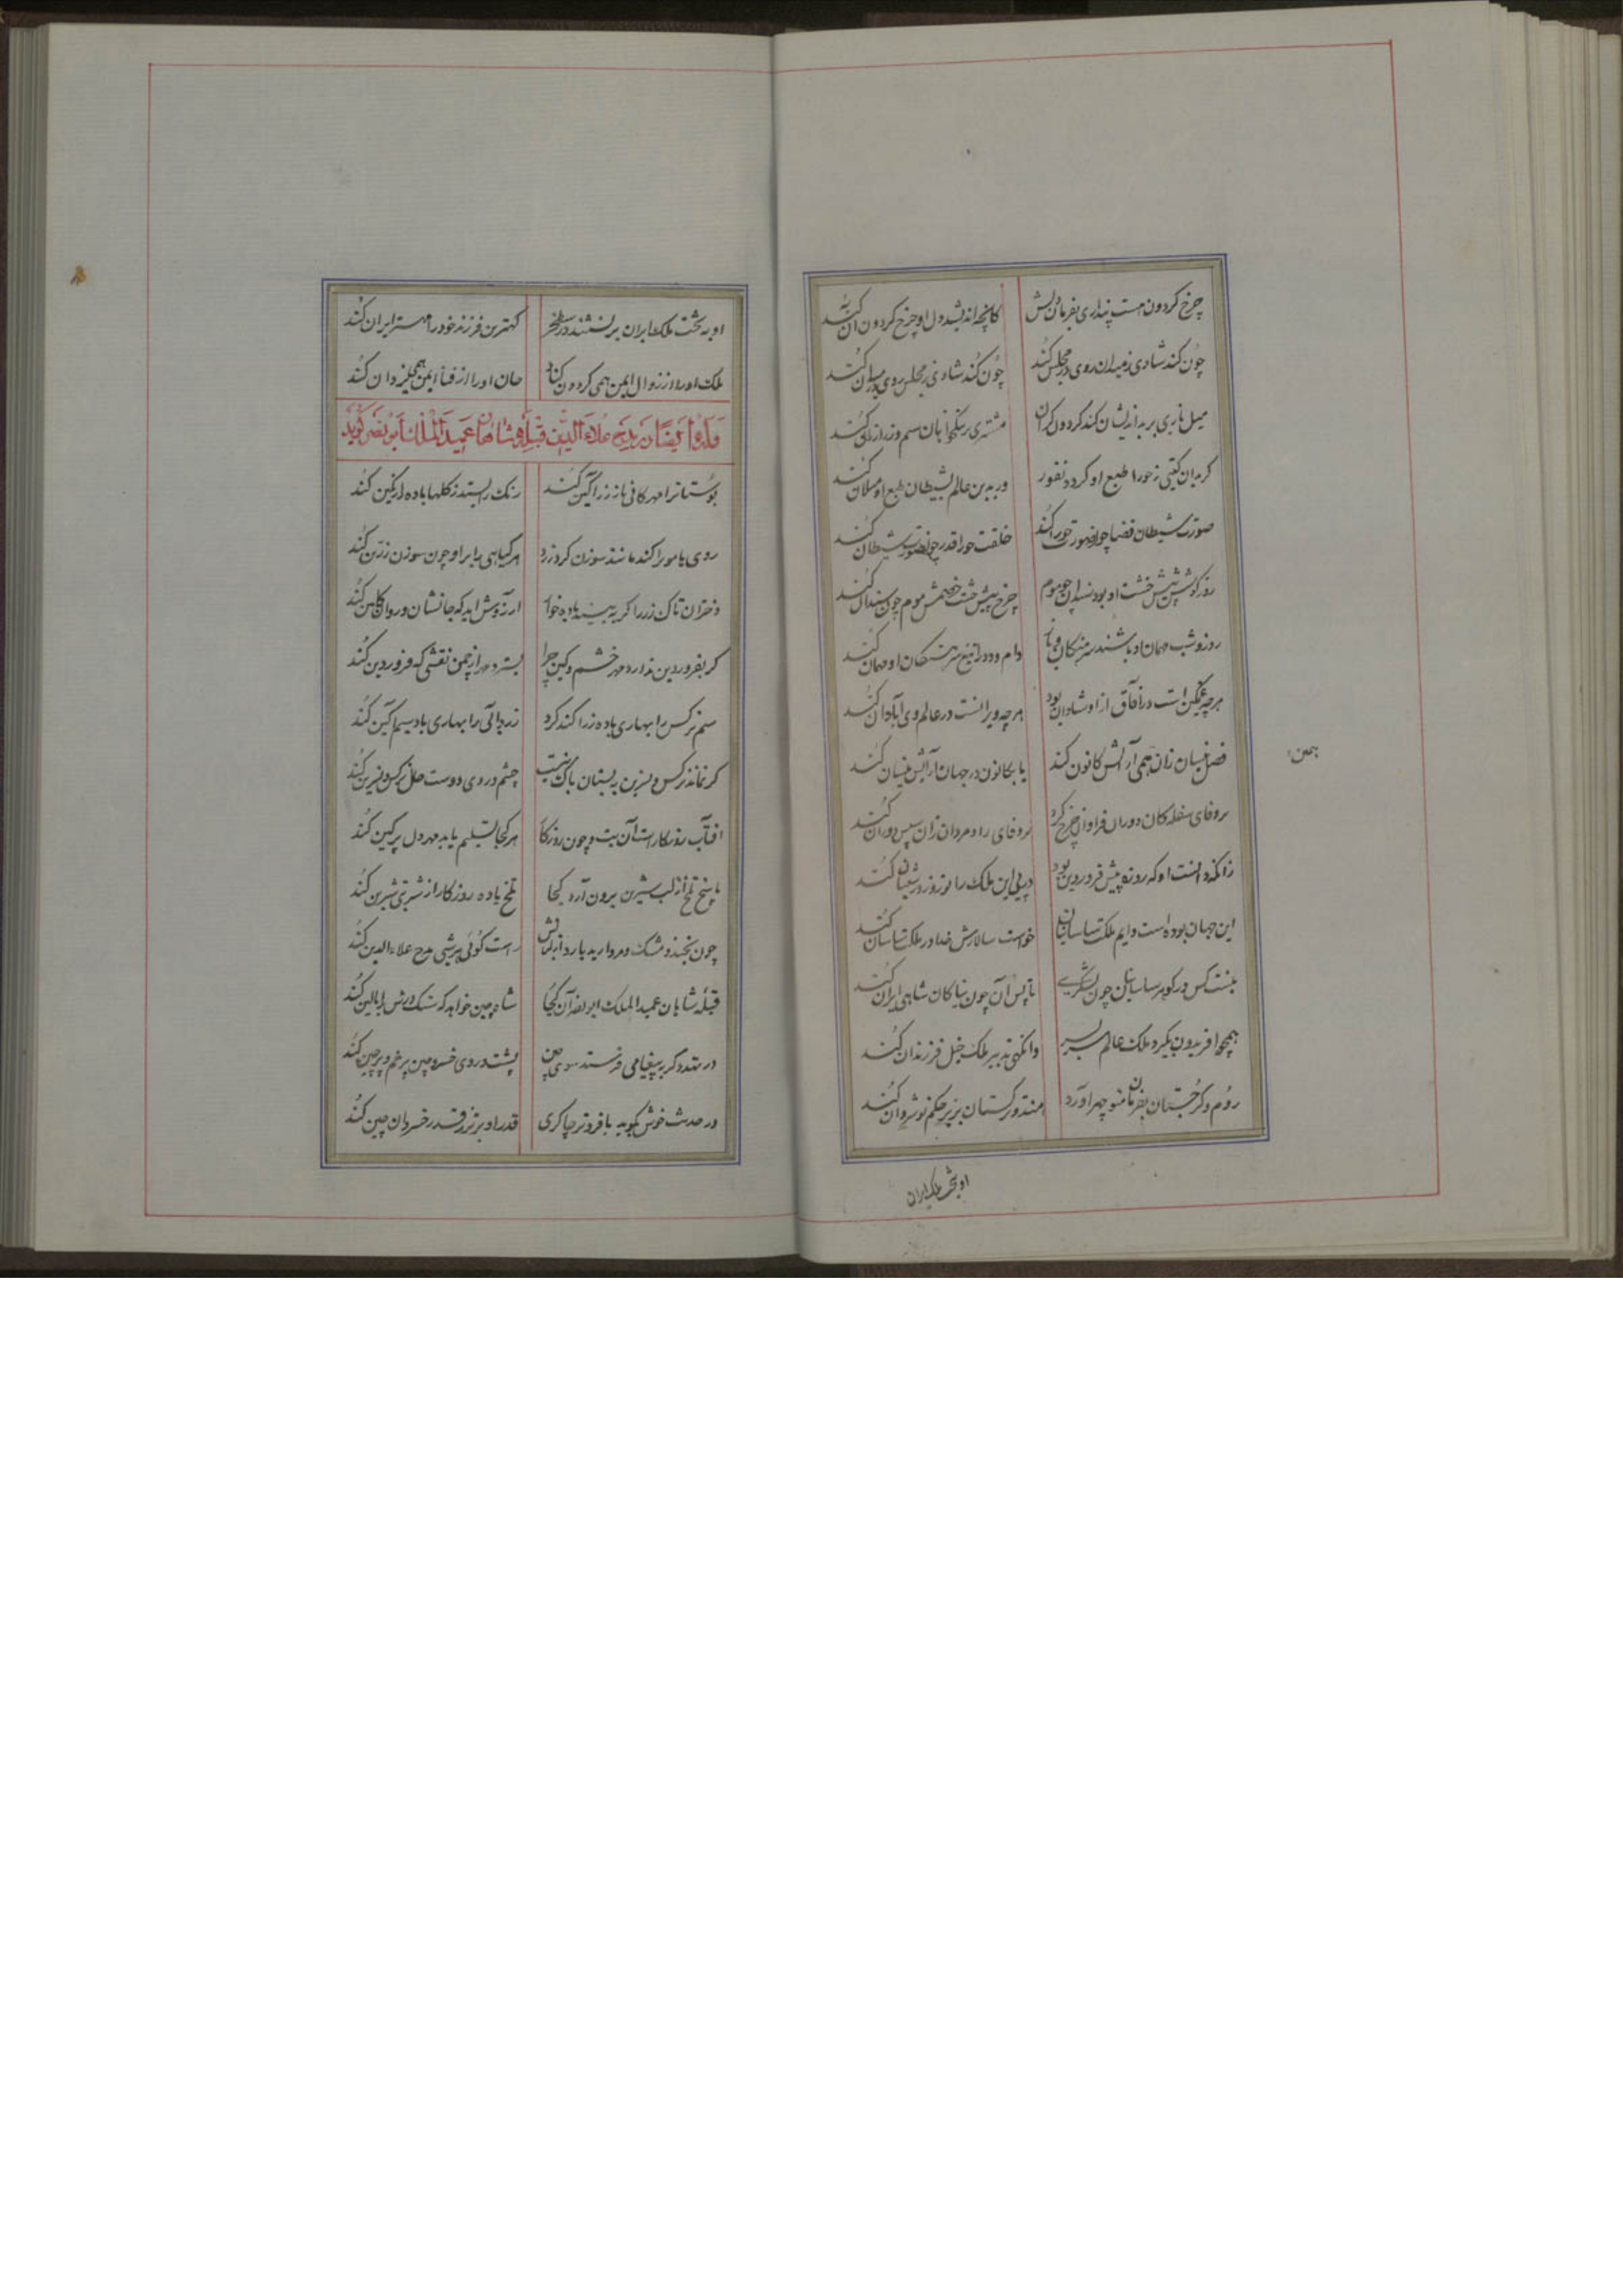 چرخ کردون هست پنداری بفرمان دلش کانچه اندیشد دل او چرخ کردون آن کند
چون کند شادی ز میدان روی در مجلس کند چون کند شادی ز مجلس روی در میدان کند
میل بر بداندیشان کند کردون کران مشتری بر نیکخواهان سیم و زر ارزان کند
کر بدان کیتی ز حورا طبع او کردد نفور ور بدین عالم بشیطان طبع او میلان کند
صورت شیطان قضا چون صورت حورا کند خلقت حورا قدر چون صورت شیطان کند
روز کوشش پیش خشت او بود سندان چو موم چرخ پیش خشت خصمش موم چون سندان کند
روز و شب مهمان او باشند سرهنکان دام و دد را تیغ سرهنکان او مهمان کند
هر چه غمکین است در آفاق از او شادان بود هر چه ویرانست در عالم وی آبادان کند
فصل نیسان زان همی آرایش کانون کند یا بکانون در جهان آرایش نیسان کند
بر وفای سفلکان دوران فراوان چرخ کرد بر وفای راد مردان زان سپس دوران کند
زانکه دانست او که روزه پیش فروردین بود در پی این ملک را نوروز در شعبان کند
این جهان بوده است دایم ملکت ساسانیان خواست سالارش خدا در ملکت ساسان کند
نیست کس در کوهر ساسانیان چون لشکری تا پس آن چون نیاکان شاهی ایران کند
همچو افریدون بکیرد ملک عالم سر بسر وانکهی تدبیر ملک خیل فرزندان کند
روم و کرجستان بفرمان منوچهر آورد هند و ترکستان بزیر حکم نوشروان کند
بهمن
او بتخت ملک ایران
او به تخت ملک ایران بر نشیند در سطخر کهترین فرزند خود را مهتر ایران کند
ملک او را از زوال ایمن همی کردون کناد جان او را از فنا ایمن همی یزدان کند
وله ایضاً در مدح علاء الدین قبله شاهان عمید الملک ابو نصر کوید
بوستانرا مهرکانی باز زر آکین کند رنک بستد ز کلها باده را رنکین کند
روی هامونرا کند مانند سوزن کرد زرد هر کیاهی را بر او چون سوزن زرین کند
دختران تاک زر را کر به بیند باده خوار آرزوش آید که جانشان در روان کابین کند
کر بفروردین ندارد مهر خشم و کین چرا بسترد مهر از چمن نقشی که فروردین کند
سیم نرکس را بهاری باد زر آکند کرد زر آبی را بهاری باد سیم آکین کند
کر نماند نرکس و نسرین به بستان باک نیست چشم در روی دوست نرکس و نسرین کند
آفتاب روزکار است آن بت و چون روزکار هر کجا تسلیم یابد مهر دل پر کین کند
پاسخ تلخ از لب شیرین برون آرد کجا تلخ باده روزکار از شربتی شیرین کند
چون بخندد مشک و مروارید بارد از لبش راست کوئی پرسشی مدح علاء الدین کند
قبله شاهان عمید الملک ابو نصر آن کجا شاه چین خواهد که سنک درش را بالین کند
در تهدد کر به پیغامی فرستد سوی چین پشت و روی خسرو چین پر خم و پر چین کند
ور حدیث خوش بکوید با فروتر چاکری قدر او برتر ز قدر خسروان چین کند